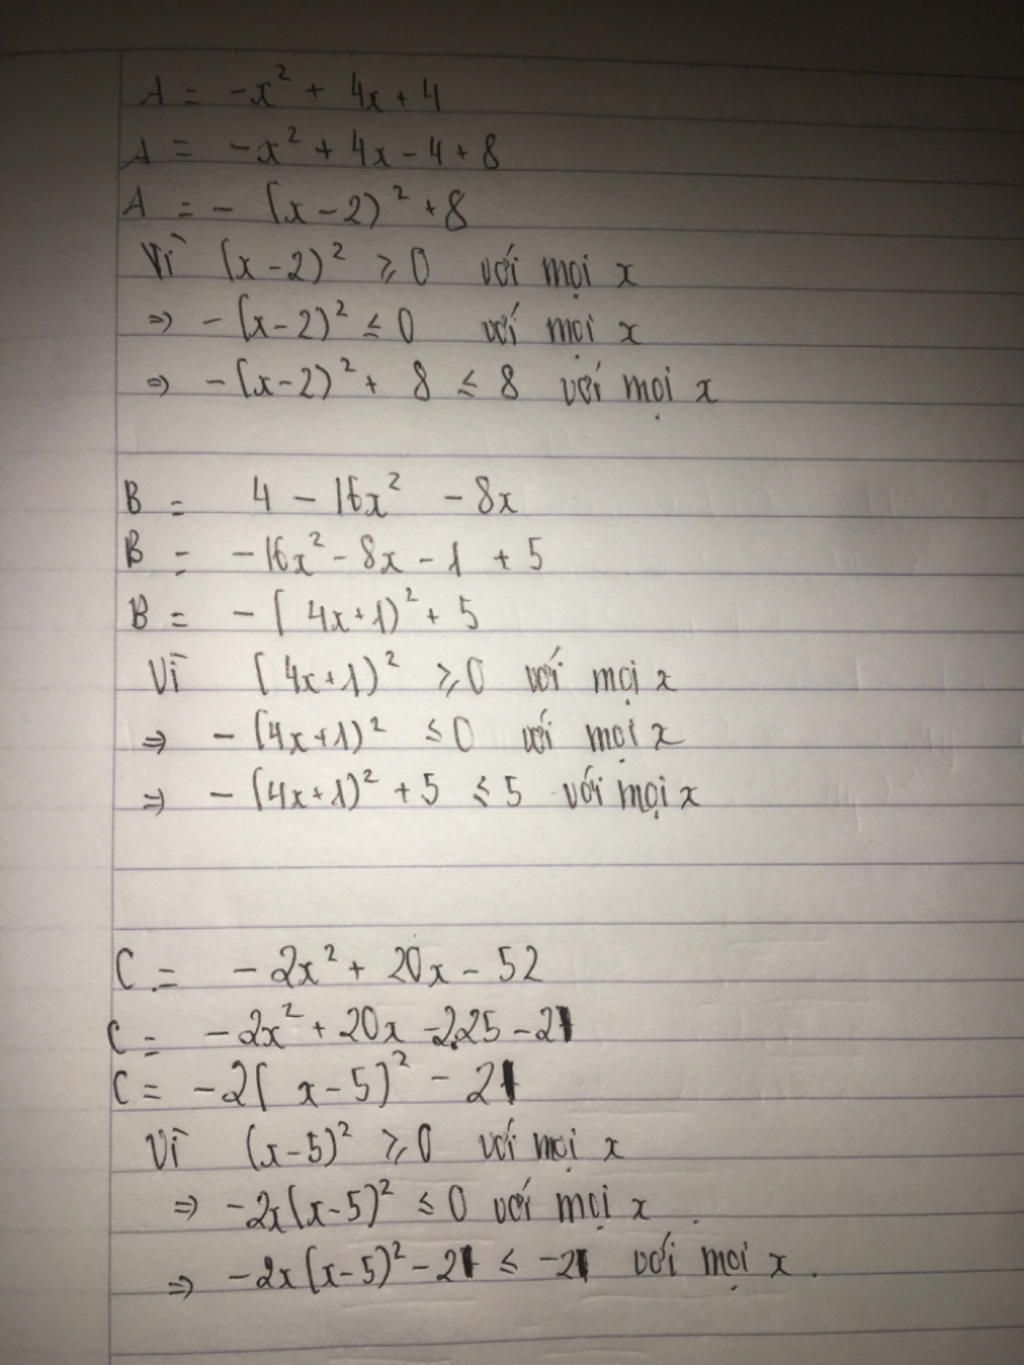 A = -x² + 4x + 4
A = -x² + 4x - 4 + 8
A = - (x-2)² + 8
Vì (x-2)² ≥ 0 với mọi x
⇒ -(x-2)² ≤ 0 với mọi x
⇒ -(x-2)² + 8 ≤ 8 với mọi x
B = 4 - 16x² - 8x
B = -16x² - 8x - 1 + 5
B = - (4x+1)² + 5
Vì (4x+1)² ≥ 0 với mọi x
⇒ - (4x+1)² ≤ 0 với mọi x
⇒ - (4x+1)² + 5 ≤ 5 với mọi x
C = -2x² + 20x - 52
C = -2x² + 20x - 2.25 - 2
C = -2(x-5)² - 2
Vì (x-5)² ≥ 0 với mọi x
⇒ -2x(x-5)² ≤ 0 với mọi x
⇒ -2x(x-5)² - 2 ≤ -2 với mọi x.